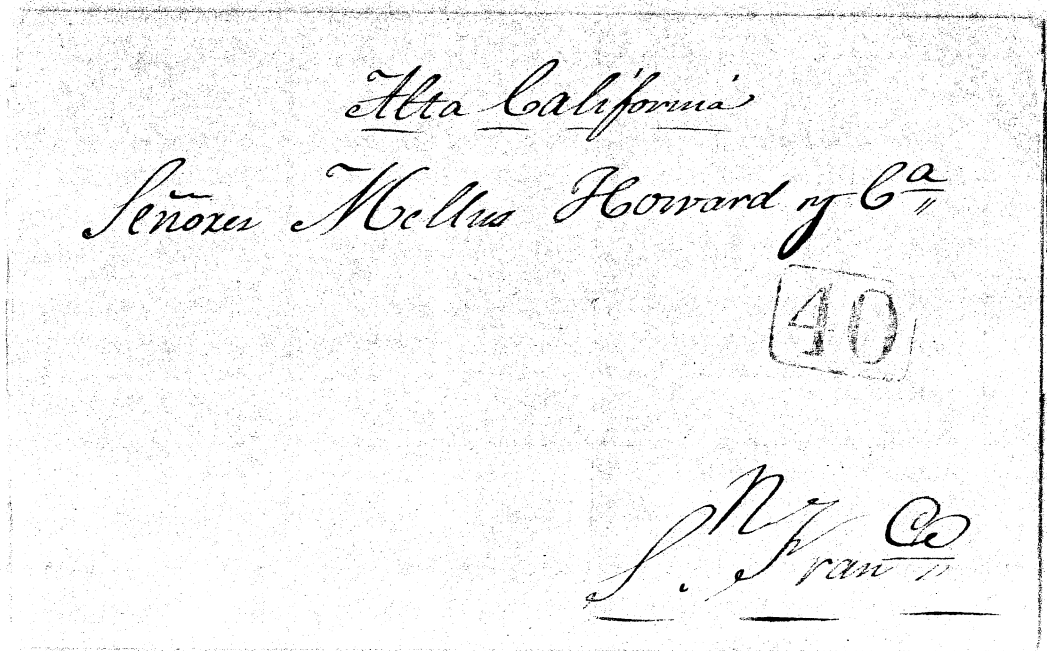 Alta California
Señores Mellus Howard y Cª
40
Sⁿ. Franᶜᵒ